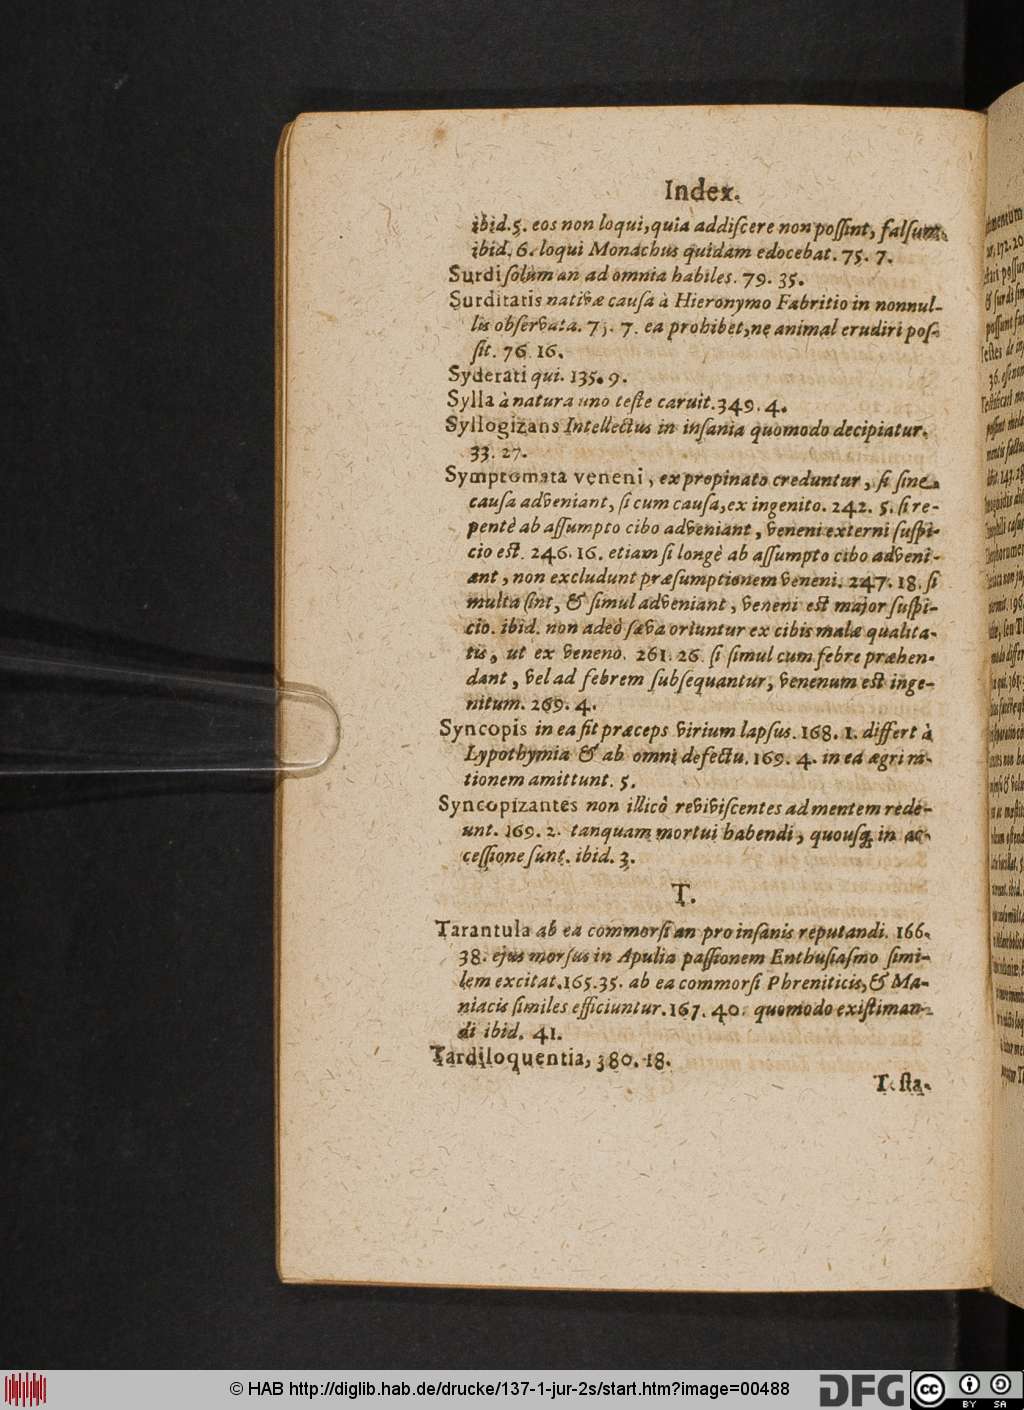 Index.
ibid. 5. eos non loqui, quia addiſcere non poſſint, falſum.
ibid. 6. loqui Monachus quidam edocebat. 75. 7.
Surdi ſolùm an ad omnia habiles. 79. 35.
Surditatis nativæ cauſa à Hieronymo Fabritio in nonnul-
lis obſervata. 75. 7. ea prohibet, ne animal erudiri poſ-
ſit. 76 16.
Syderati qui. 135. 9.
Sylla à natura uno teſte caruit. 349. 4.
Syllogizans Intellectus in inſania quomodo decipiatur.
33. 27.
Symptomata veneni, ex propinato creduntur, ſi ſine
cauſa adveniant, ſi cum cauſa, ex ingenito. 242. 5. ſi re-
pentè ab aſſumpto cibo adveniant, veneni externi ſuſpi-
cio eſt. 246. 16. etiam ſi longè ab aſſumpto cibo adveni-
ant, non excludunt præſumptionem veneni. 247. 18. ſi
multa ſint, & ſimul adveniant, veneni eſt major ſuſpi-
cio. ibid. non adeò ſæva oriuntur ex cibis malæ qualita-
tis, ut ex veneno. 261. 26. ſi ſimul cum febre præhen-
dant, vel ad febrem ſubſequantur, venenum eſt inge-
nitum. 269. 4.
Syncopis in ea fit præceps virium lapſus. 168. 1. differt à
Lypothymia & ab omni defectu. 169. 4. in ea ægri ra-
tionem amittunt. 5.
Syncopizantes non illicò reviviſcentes ad mentem rede-
unt. 169. 2. tanquam mortui habendi, quouſq; in ac-
ceſſione ſunt. ibid. 3.
T.
Tarantula ab ea commorſi an pro inſanis reputandi. 166.
38. ejus morſus in Apulia paſſionem Enthuſiaſmo ſimi-
lem excitat. 165. 35. ab ea commorſi Phreniticis, & Ma-
niacis ſimiles efficiuntur. 167. 40. quomodo exiſtiman-
di ibid. 41.
Tardiloquentia, 380. 18.
Teſta-
© HAB http://diglib.hab.de/drucke/137-1-jur-2s/start.htm?image=00488
DFG
cc
BY SA